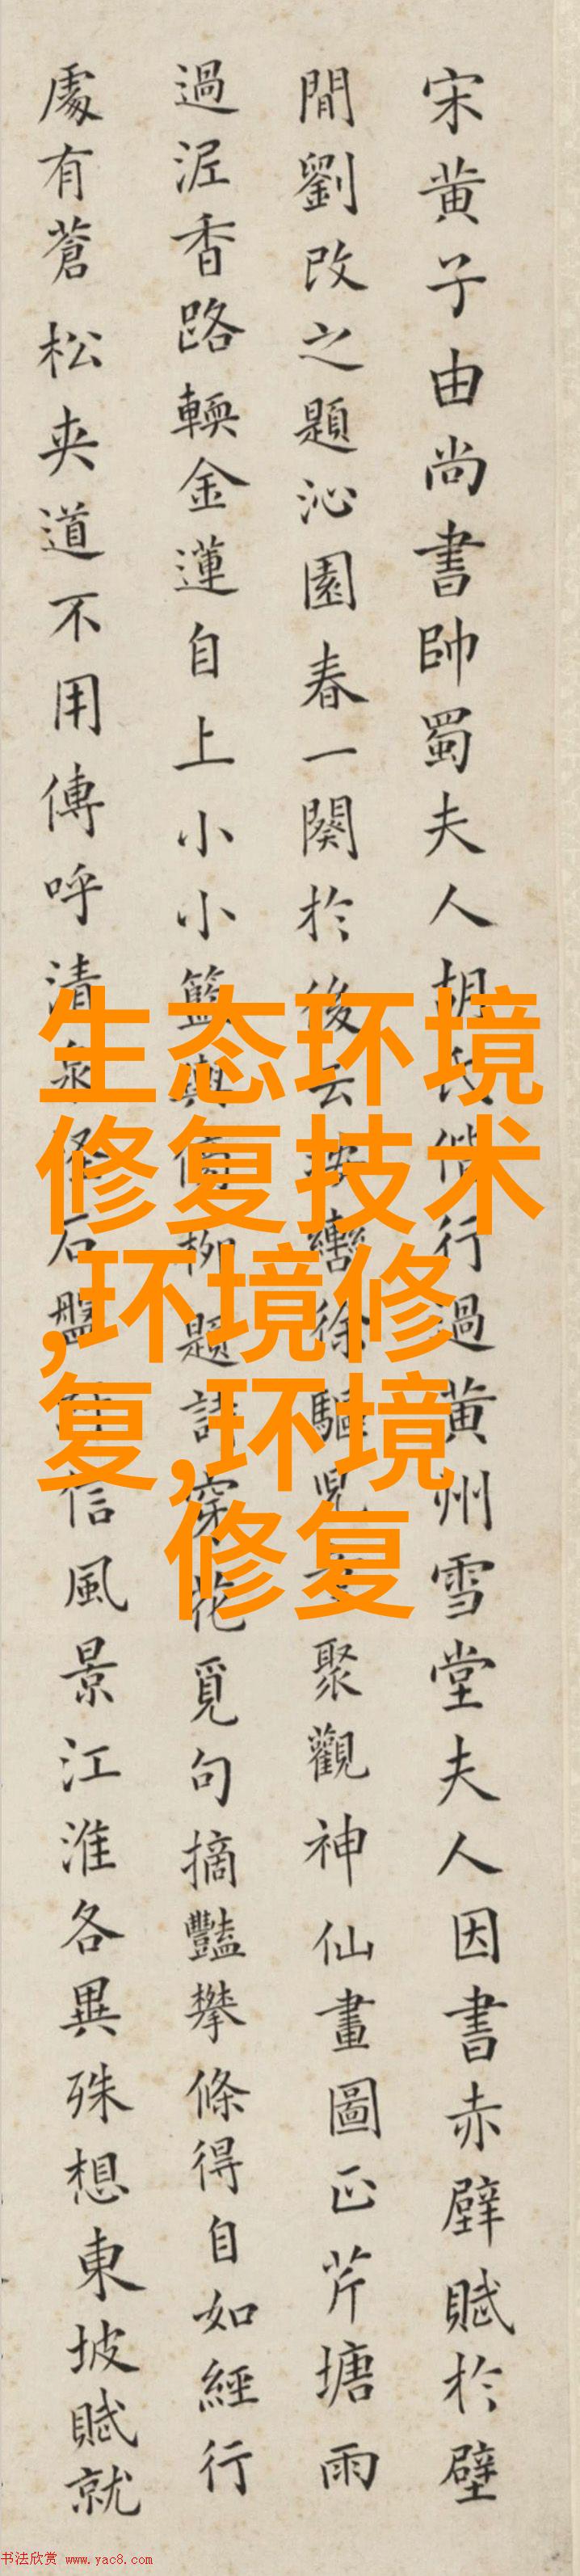 宋黄子由尚書帥蜀夫人胡氏偕行過黄州雪堂夫人因書赤壁賦於壁
間劉改之題沁園春一闋於後云按轡徐驅兒聚觀神仙畫圖正芹塘雨
過泥香路輭金蓮自上小小籃輿傍柳題詩穿花覓句摘豔攀條得自如經行
處有蒼松夾道不用傳呼清泉怪石盤信風景江淮各異殊想東坡賦就
生态环境
修复技术
,环境修
复,环境
修复
书法欣赏 www.yac8.com